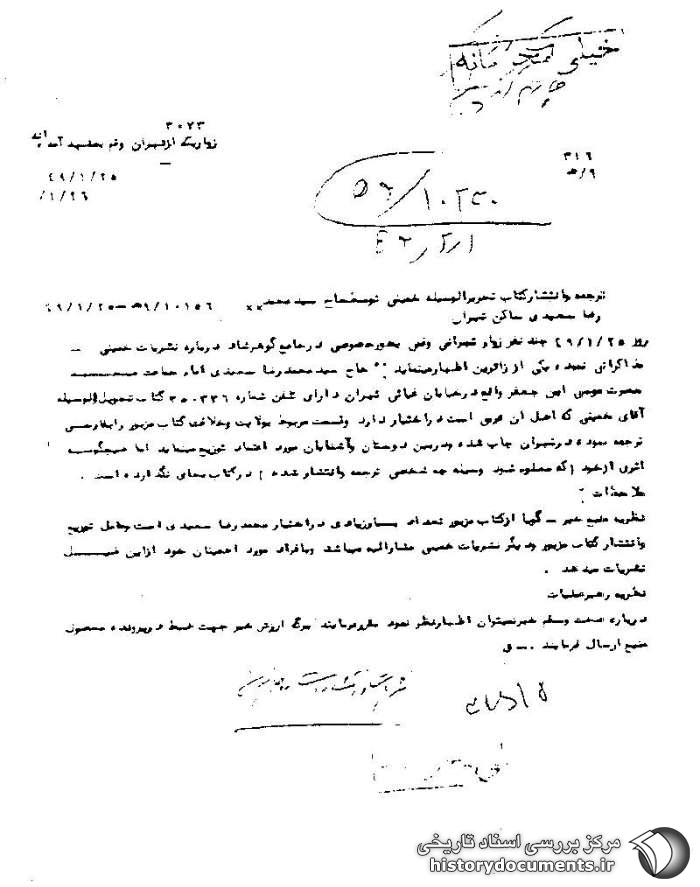 خیلی
۳۰۲۳
زواریکه از تهران وقم بمشهد آمده‌اند
۳۱۶
۹/ه
۴۹/۱/۲۵
/۱/۲۶
۱۰۲۳۰/
ترجمه وانتشار کتاب تحریرالوسیله خمینی توسط حاج سید محمد xx ۹/۱۰۱۵۶ه–۴۹/۱/۲۵
رضا سعیدی ساکن تهران
روز ۴۹/۱/۲۵ چند نفر زوار تهرانی وقمی بطور خصوصی در جامع گوهرشاد درباره نشریات خمینی
مذاکراتی نموده یکی از زائرین اظهار مینماید حاج سید محمد رضا سعیدی امام جماعت مسجد
حضرت موسی ابن جعفر واقع در خیابان غیاثی تهران دارای تلفن شماره ۳۵۰۳۳۶ کتاب تحریرالوسیله
آقای خمینی که اصل آن عربی است در اختیار دارد وقسمت مربوط بولایت وخلافت کتاب مزبور را بفارسی
ترجمه نموده در تهران چاپ شده وبین دوستان وآشنایان مورد اعتماد توزیع مینماید اما هیچگونه
اثری از خود (که معلوم شود وسیله چه شخصی ترجمه وانتشار شده) در کتاب بجای نگذارده است .
ملاحظات
نظریه منبع خبر – گویا از کتاب مزبور تعداد بسیار زیادی در اختیار محمد رضا سعیدی است وعامل توزیع
وانتشار کتاب مزبور ودیگر نشریات خمینی مشارالیه میباشد وبافراد مورد اطمینان خود از این قبیل
نشریات میدهد .
نظریه رهبر عملیات
درباره صحت وسقم خبر نمیتوان اظهار نظر نمود مقرر فرمایند برگ ارزش خبر جهت ضبط در پرونده محصول
منبع ارسال فرمایند .
مرکز بررسی اسناد تاریخی
historydocuments.ir